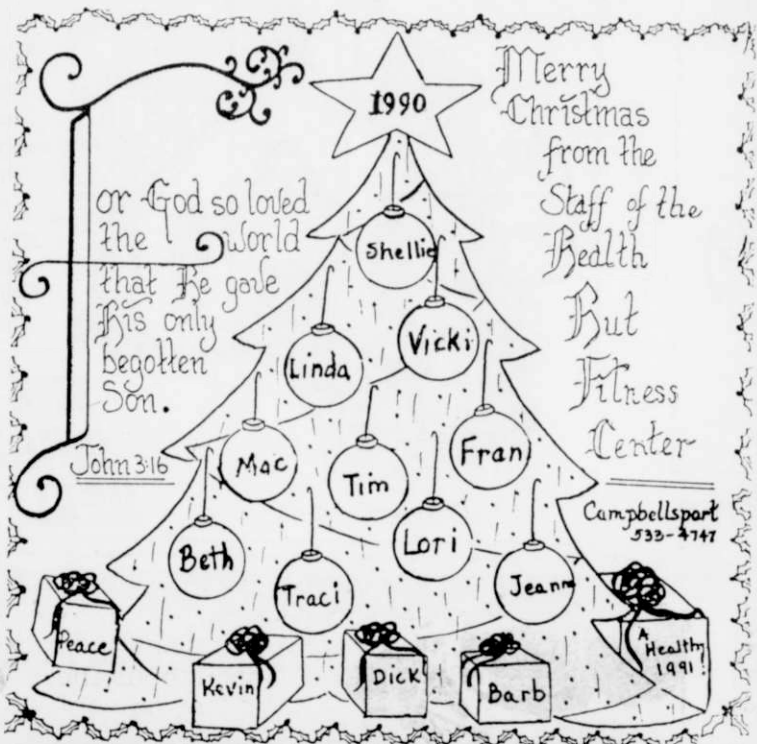 1990
For God so loved
the world
that He gave
His only
begotten
Son.
John 3:16
Merry
Christmas
from the
Staff of the
Health
Hut
Fitness
Center
Campbellsport
533-4747
Shellie
Vicki
Linda
Fran
Mac
Tim
Lori
Beth
Traci
Jeann
Peace
Kevin
Dick
Barb
A
Healthy
1991!